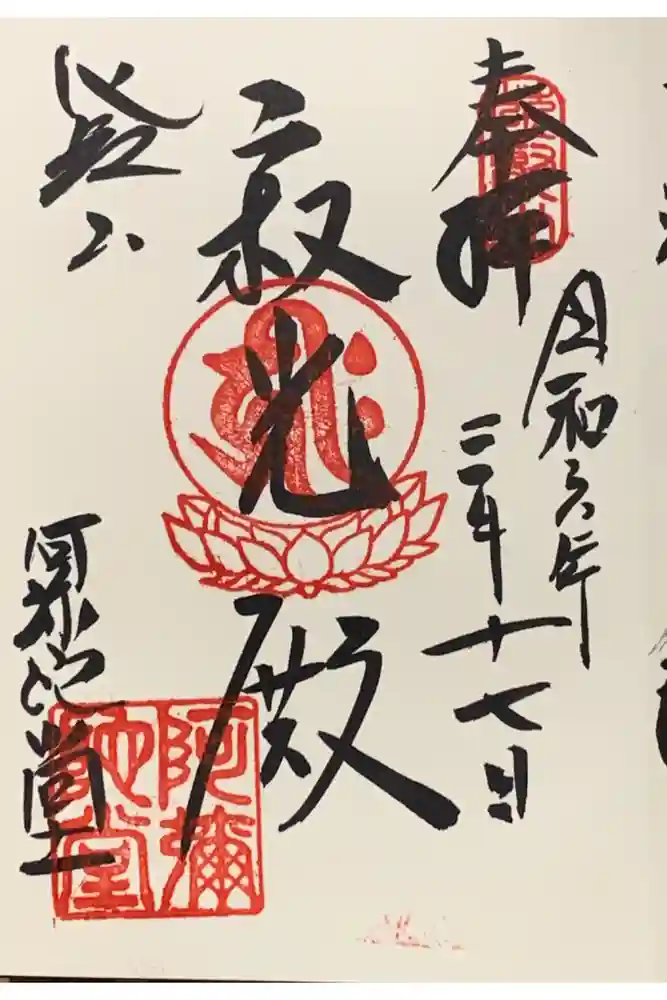 奉拝
令和六年
三月十七日
寂光殿
比叡山
阿弥陀堂
阿彌
陀堂